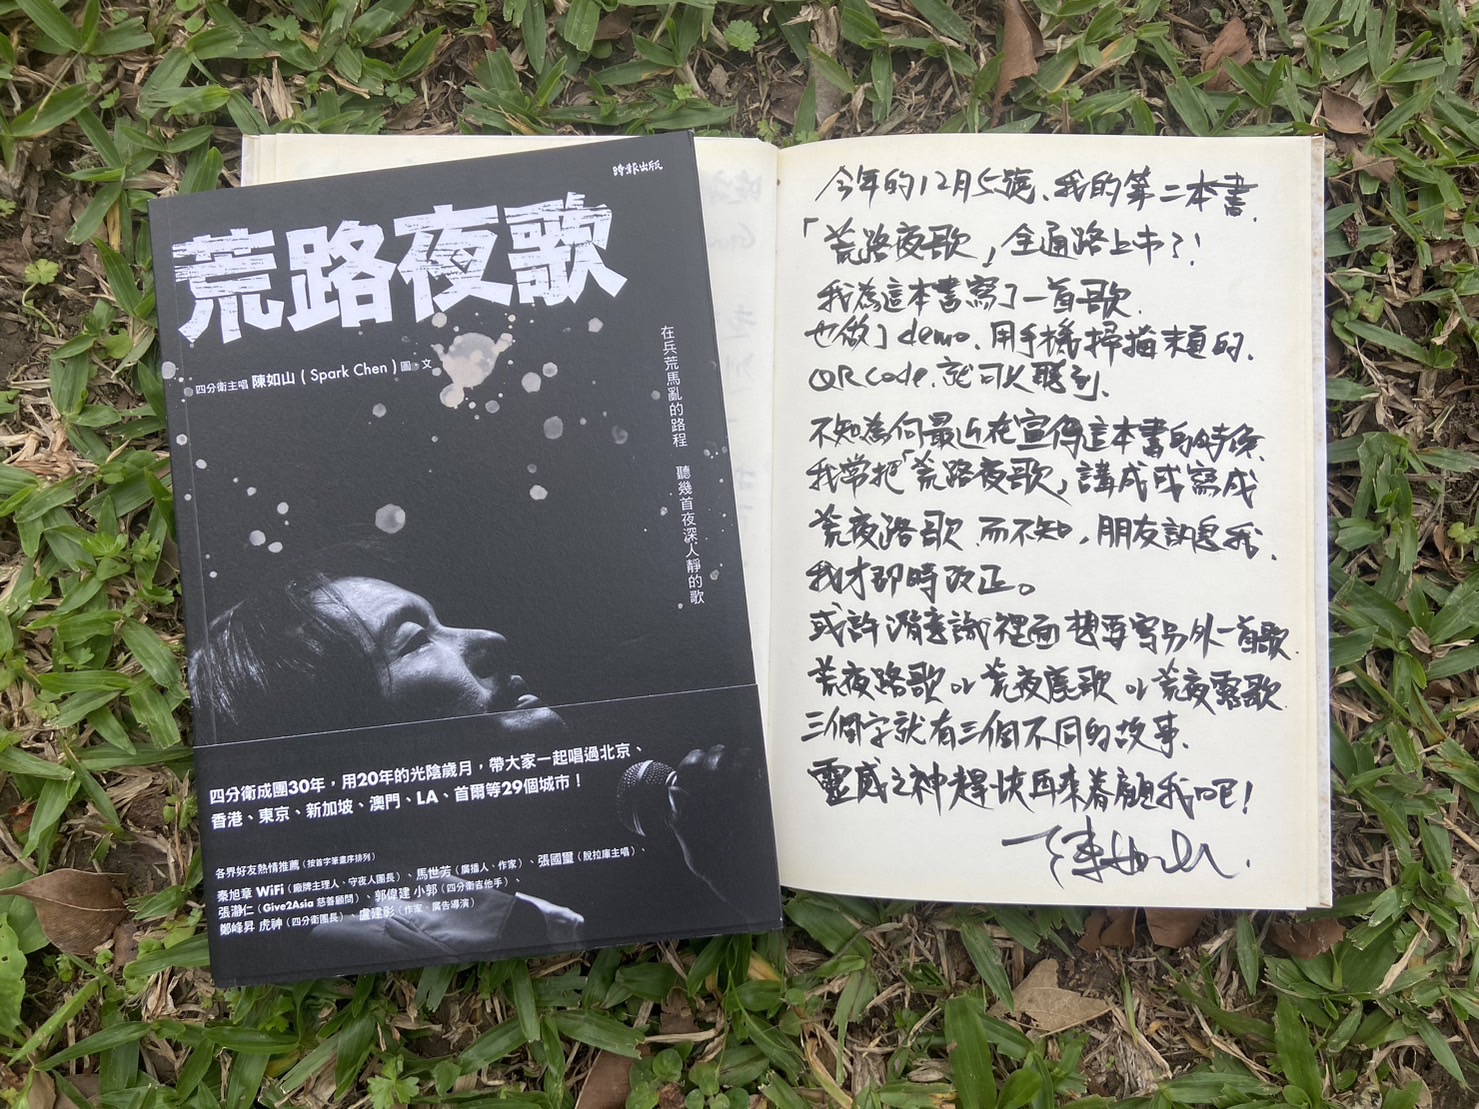 時報出版
荒路夜歌
四分衛主唱 陳如山 ( Spark Chen ) 圖・文
在兵荒馬亂的路程 聽幾首夜深人靜的歌
四分衛成團30年，用20年的光陰歲月，帶大家一起唱過北京、
香港、東京、新加坡、澳門、LA、首爾等29個城市！
各界好友熱情推薦（按首字筆畫序排列）
秦旭章 WiFi（廠牌主理人、守夜人團長）、馬世芳（廣播人、作家）、張國璽（脫拉庫主唱）、
張瀞仁（Give2Asia 慈善顧問）、郭偉建 小郭（四分衛吉他手）、
鄭峰昇 虎神（四分衛團長）、盧建彰（作家、廣告導演）
今年的12月5號、我的第二本書、
「荒路夜歌」全通路上市了！
我為這本書寫了一首歌、
也做了demo、用手機掃描末頁的、
QR code、就可以聽到、
不知為何最近在宣傳這本書的時候、
我常把「荒路夜歌」講成或寫成
荒夜路歌、而不知，朋友訊息我、
我才即時改正。
或許潛意識裡面想要寫另外一首歌、
荒夜路歌 or 荒夜鹿歌 or 荒夜露歌
三個字就有三個不同的故事、
靈感之神趕快再來眷顧我吧！
陳如山